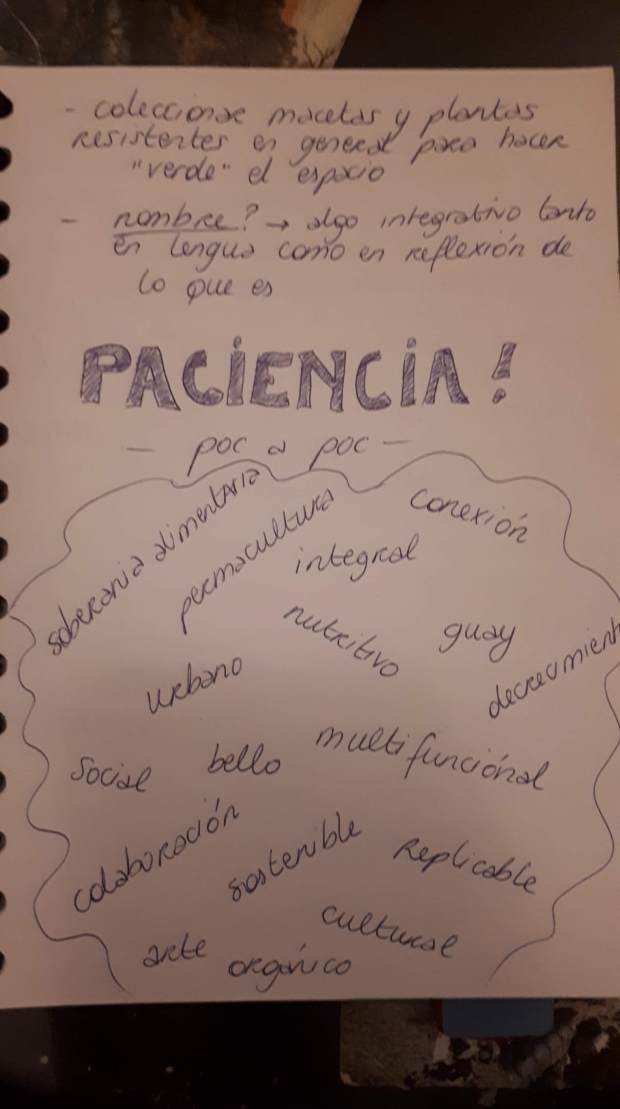 - coleccionar macetas y plantas
resistentes en general para hacer
"verde" el espacio
- nombre? → algo integrativo tanto
en lengua como en reflexión de
lo que es
PACIENCIA!
- poc a poc -
soberania alimentaria
permacultura
conexión
integral
nutritivo
guay
decrecimient
urbano
social
bello
multifuncional
colaboración
sostenible
replicable
cultural
arte
orgánico